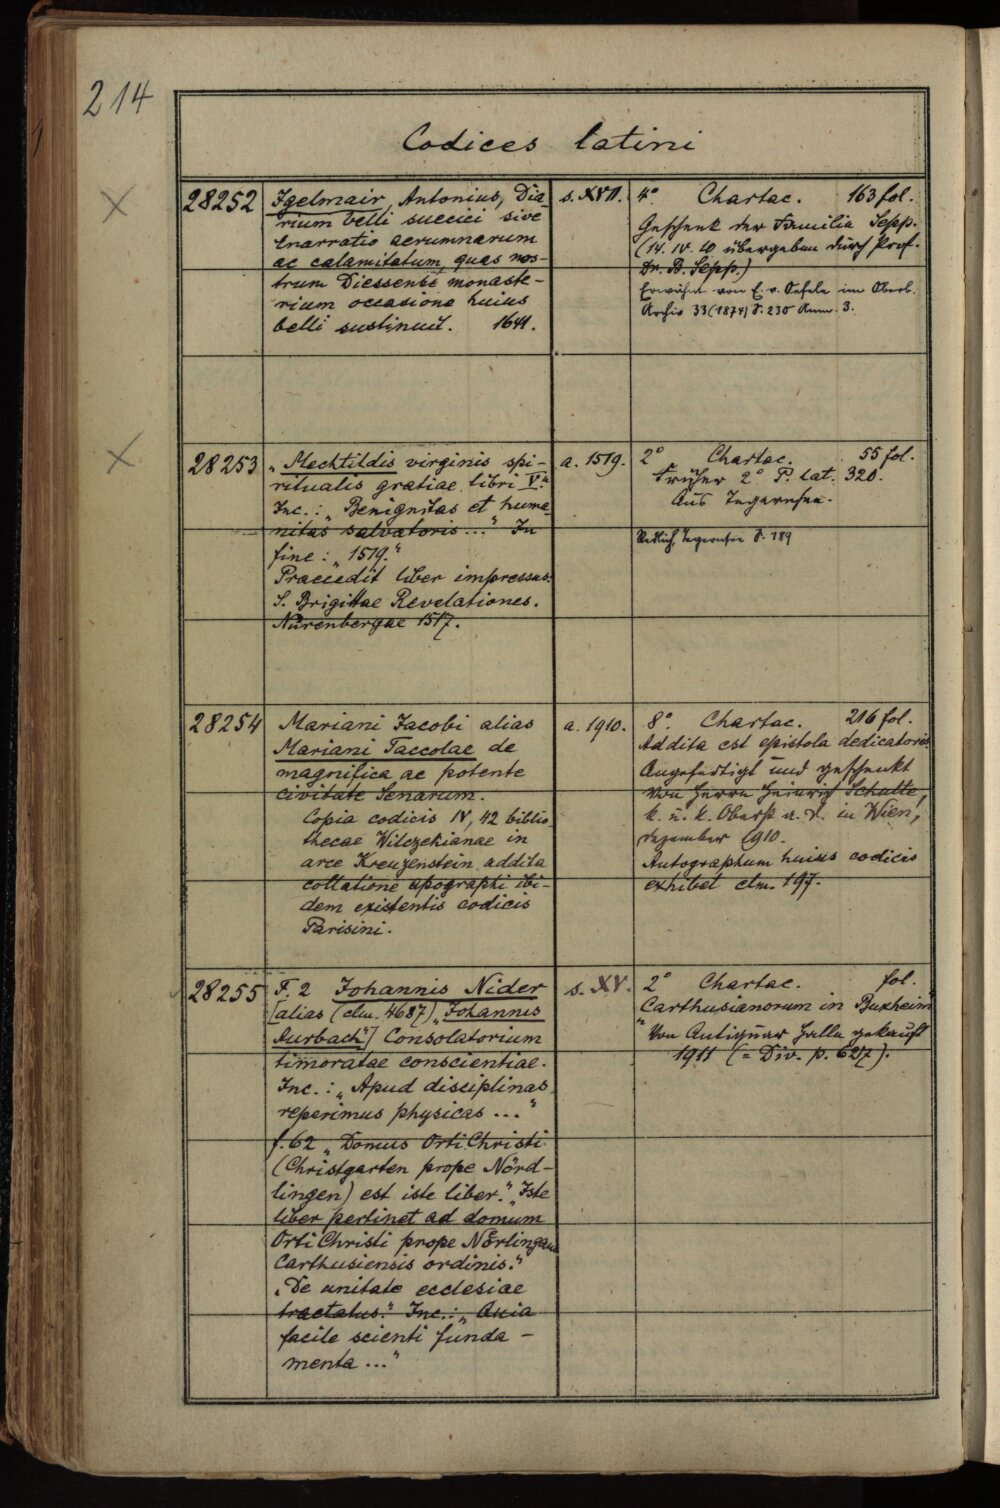 214
Codices latini
28252
Igelmair, Antonius, Dia-
rium belli suecici sive
enarratio aerumnarum
ac calamitatum, quas nos-
trum Diessense monaste-
rium occasione huius
belli sustinuit. 1641.
s. XVII.
4° Chartac. 163 fol.
Geschenk der Familie Sepp.
(14. IV. 10 übergeben durch Prof.
Dr. B. Sepp.)
Erwähnt von E. v. Oefele im Oberb.
Archiv 33 (1874) S. 230 Anm. 3.
28253
„Mechtildis virginis spi-
ritualis gratiae libri V.“
Inc.: „Benignitas et huma-
nitas salvatoris...“ In
fine: „1519.“
Praecedit liber impressus:
S. Brigittae Revelationes.
Nürenbergae 1517.
a. 1519.
2° Chartac. 55 fol.
Früher 2° P. lat. 320.
Aus Tegernsee.
Redlich, Tegernsee S. 189
28254
Mariani Jacobi alias
Mariani Taccolae de
magnifica ac potente
civitate Senarum.
Copia codicis IV, 42 biblio-
thecae Wilczekianae in
arce Kreuzenstein addita
collatione apographi ibi-
dem existentis codicis
Parisini.
a. 1910.
8° Chartac. 216 fol.
Addita est epistola dedicatoria.
Angefertigt und geschenkt
von Herrn Heinrich Schulte,
k. u. k. Oberst a. D. in Wien,
Dezember 1910.
Autographum huius codicis
exhibet clm. 197.
28255
F. 2 Johannis Nider
[alias (clm. 4687) „Johannis
Aurbach“] Consolatorium
timoratae conscientiae.
Inc.: „Apud disciplinas
reperimus physicas ...“
f. 62 „Domus Orti Christi
(Christgarten prope Nörd-
lingen) est iste liber.“ „Iste
liber pertinet ad domum
Orti Christi prope Nörlingen
Carthusiensis ordinis.“
„De unitate ecclesiae
tractatus.“ Inc.: „Quia
facile scienti funda-
menta ...“
s. XV.
2° Chartac. fol.
Carthusianorum in Buxheim
Von Antiquar Halle gekauft
1911 (= Div. p. 627).